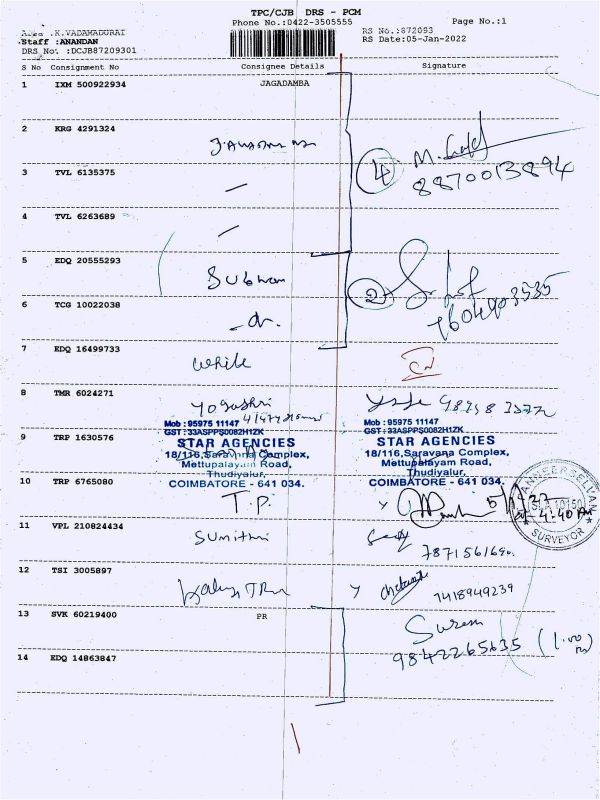 TPC/CJB DRS - PCM
Phone No.:0422-3505555
Page No.:1
Area :K.VADAMADURAI
RS No.:872093
Staff :ANANDAN
RS Date:05-Jan-2022
DRS No. :DCJB87209301
S No Consignment No Consignee Details Signature
1 IXM 500922934 JAGADAMBA
2 KRG 4291324
4 M.
8870013894
3 TVL 6135375
4 TVL 6263689
5 EDQ 20555293 Subham
2
6 TCG 10022038 -do-
7 EDQ 16499733 White
8 TMR 6024271 Yogashri
Mob : 95975 11147
GST : 33ASPPS0082H1ZK
STAR AGENCIES
18/116,Saravana Complex,
Mettupalayam Road,
Thudiyalur,
COIMBATORE - 641 034.
Mob : 95975 11147
GST : 33ASPPS0082H1ZK
STAR AGENCIES
18/116,Saravana Complex,
Mettupalayam Road,
Thudiyalur,
COIMBATORE - 641 034.
9 TRP 1630576
10 TRP 6765080 T.P.
4:40 PM
SURVEYOR
11 VPL 210824434 Sumithri
12 TSI 3005897
7418949239
13 SVK 60219400 PR
9842265635 (1.00
14 EDQ 14863847